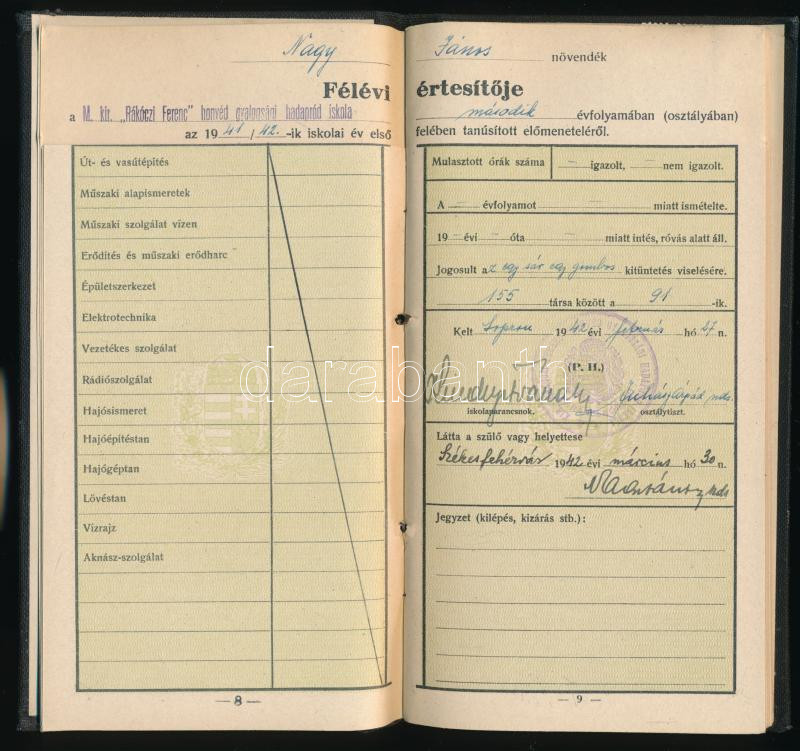 Nagy János növendék
Félévi értesítője
a M. kir. "Rákóczi Ferenc" honvéd gyalogsági hadapród iskola második évfolyamában (osztályában)
az 1941/42.-ik iskolai év első felében tanúsított előmeneteléről.
Út- és vasútépítés
Műszaki alapismeretek
Műszaki szolgálat vízen
Erődítés és műszaki erődharc
Épületszerkezet
Elektrotechnika
Vezetékes szolgálat
Rádiószolgálat
Hajósismeret
Hajóépítéstan
Hajógéptan
Lövéstan
Vízrajz
Aknász-szolgálat
— 8 —
Mulasztott órák száma – igazolt, – nem igazolt.
A – évfolyamot – miatt ismételte.
19 – évi – óta – miatt intés, róvás alatt áll.
Jogosult az egy sár egy gombos kitüntetés viselésére.
155 társa között a 91 -ik.
Kelt Sopron 1942 évi február hó 27 n.
(P. H.)
iskolaparancsnok. osztálytiszt.
Látta a szülő vagy helyettese
Székesfehérvár 1942 évi március hó 30 n.
Jegyzet (kilépés, kizárás stb.):
— 9 —
darabanth